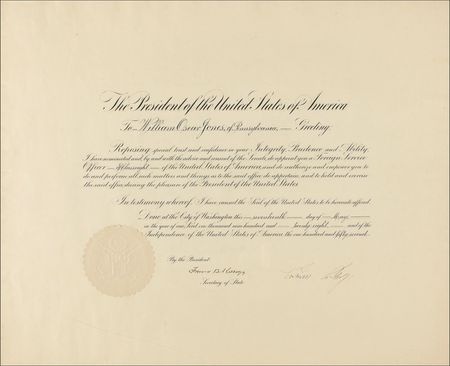 The President of the United States of America
To William Oscar Jones, of Pennsylvania, Greeting:
Reposing special trust and confidence in your Integrity, Prudence and Ability,
I have nominated and, by and with the advice and consent of the Senate, do appoint you a Foreign Service
Officer of the United States of America, and do authorize and empower you to
do and perform all such matters and things as to the said office do appertain, and to hold and exercise
the said office, during the pleasure of the President of the United States.
In testimony whereof, I have caused the Seal of the United States to be hereunto affixed.
Done at the City of Washington this seventeenth day of May,
in the year of our Lord one thousand nine hundred and twenty eight, and of the
Independence of the United States of America the one hundred and fifty second.
By the President:
Secretary of State.